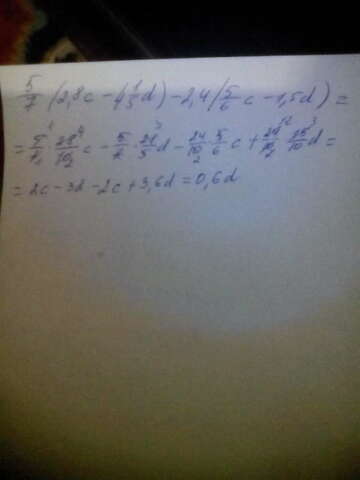 5/7 (2,8c - 4 1/5 d) - 2,4 (5/6 c - 1,5d) =
= 5/7 · 28/10 c - 5/7 · 21/5 d - 24/10 · 5/6 c + 24/10 · 15/10 d =
= 2c - 3d - 2c + 3,6d = 0,6d